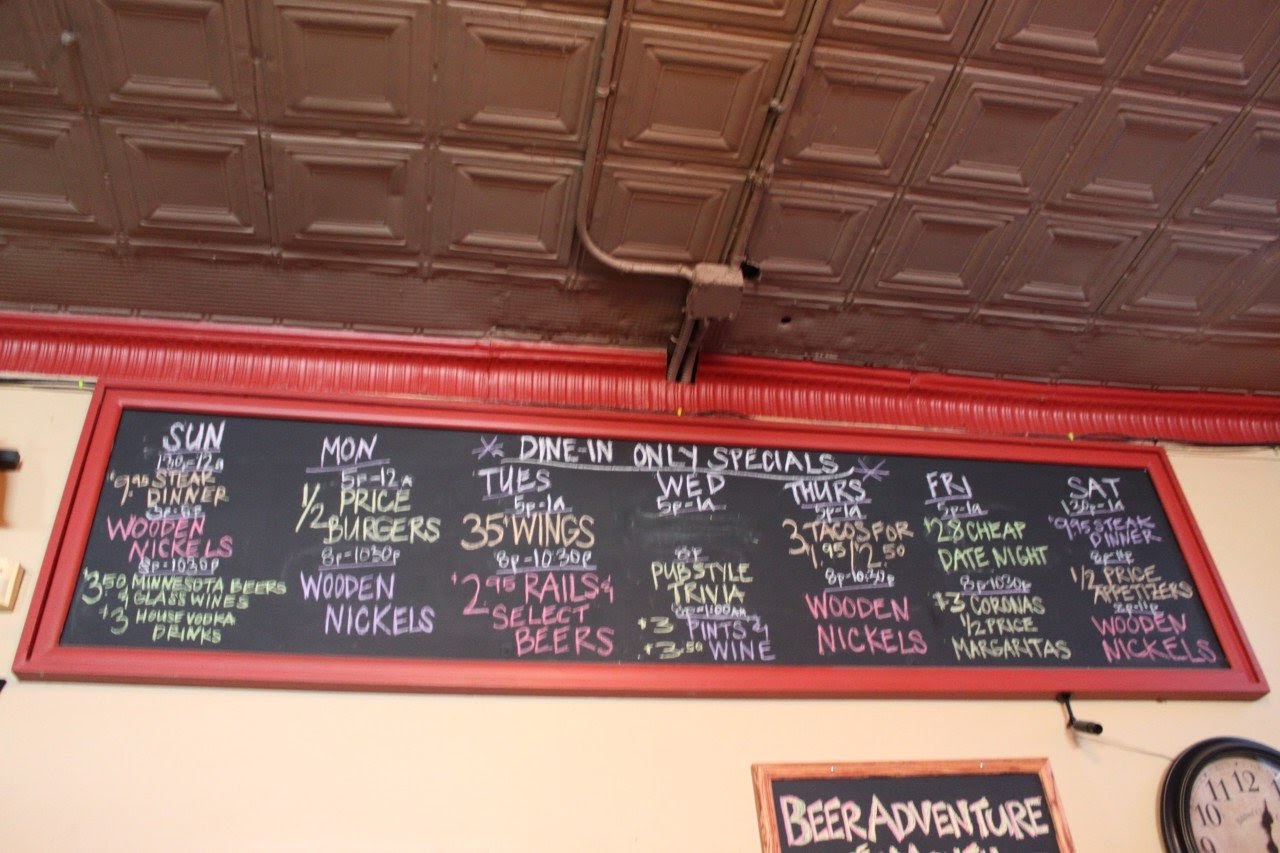 DINE-IN ONLY SPECIALS
SUN
130p-12a
$9.95 STEAK
DINNER
3p-6p
WOODEN
NICKELS
8p-1030p
$3.50 MINNESOTA BEERS
& GLASS WINES
$3 HOUSE VODKA
DRINKS
MON
5p-12a
1/2 PRICE
BURGERS
8p-1030p
WOODEN
NICKELS
TUES
5p-1a
35¢ WINGS
8p-10:30p
$2.95 RAILS &
SELECT
BEERS
WED
5p-1a
8p
PUB STYLE
TRIVIA
$3 PINTS &
$3.50 WINE
THURS
5p-1a
3 TACOS FOR
$1.95/$2.50
8p-10:30p
WOODEN
NICKELS
FRI
5p-1a
$28 CHEAP
DATE NIGHT
8p-1030p
$3 CORONAS
1/2 PRICE
MARGARITAS
SAT
130p-1a
$9.95 STEAK
DINNER
8p-11p
1/2 PRICE
APPETIZERS
WOODEN
NICKELS
BEER ADVENTURE
11 12
10
9